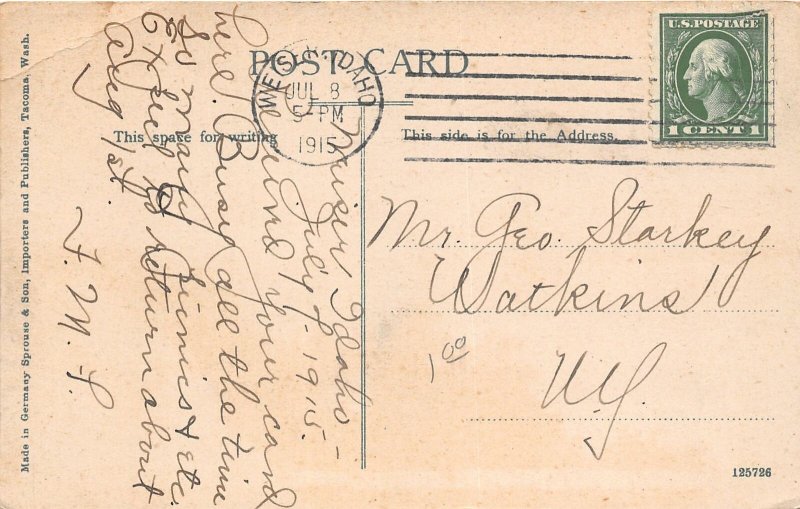 POST CARD
WEISER, IDAHO
JUL 8
5-PM
1915
U.S. POSTAGE
1 CENT 1
This space for writing
This side is for the Address.
Weiser, Idaho –
July 7-1915.
Rec'd your card
here. Busy all the time
So many Picnics & etc.
Expect to return about
Aug 1st.
F. M. S.
Mr. Geo. Starkey
Watkins
N.Y.
1 00
Made in Germany Sprouse & Son, Importers and Publishers, Tacoma, Wash.
125726